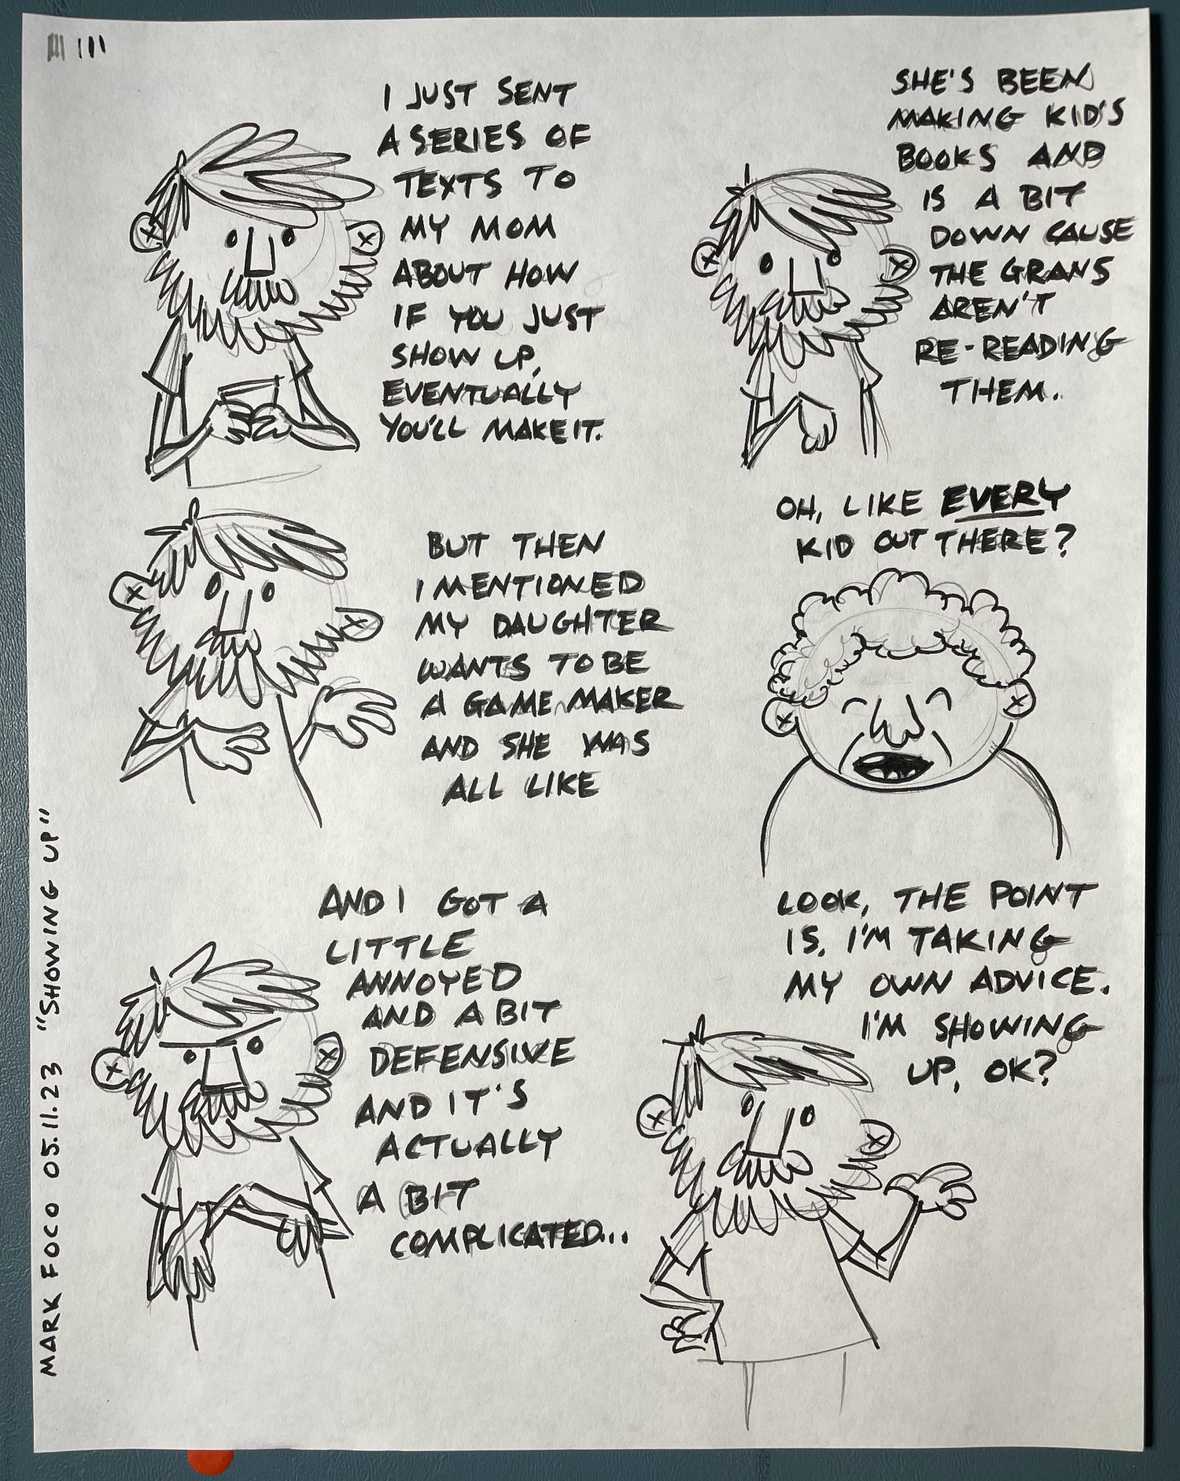 I JUST SENT
A SERIES OF
TEXTS TO
MY MOM
ABOUT HOW
IF YOU JUST
SHOW UP,
EVENTUALLY
YOU'LL MAKE IT.
SHE'S BEEN
MAKING KID'S
BOOKS AND
IS A BIT
DOWN CAUSE
THE GRANS
AREN'T
RE-READING
THEM.
BUT THEN
I MENTIONED
MY DAUGHTER
WANTS TO BE
A GAME MAKER
AND SHE WAS
ALL LIKE
OH, LIKE EVERY
KID OUT THERE?
AND I GOT A
LITTLE
ANNOYED
AND A BIT
DEFENSIVE
AND IT'S
ACTUALLY
A BIT
COMPLICATED...
LOOK, THE POINT
IS, I'M TAKING
MY OWN ADVICE.
I'M SHOWING
UP, OK?
MARK FOCO 05.11.23 "SHOWING UP"